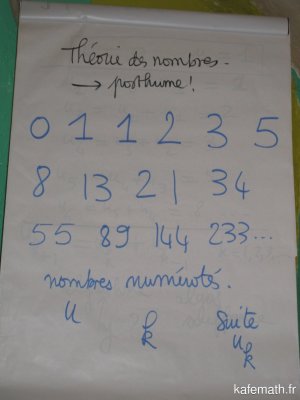 Théorie des nombres.
→ posthume!
0 1 1 2 3 5
8 13 21 34
55 89 144 233...
nombres numérotés.
u k suite
u_k
kafemath.fr